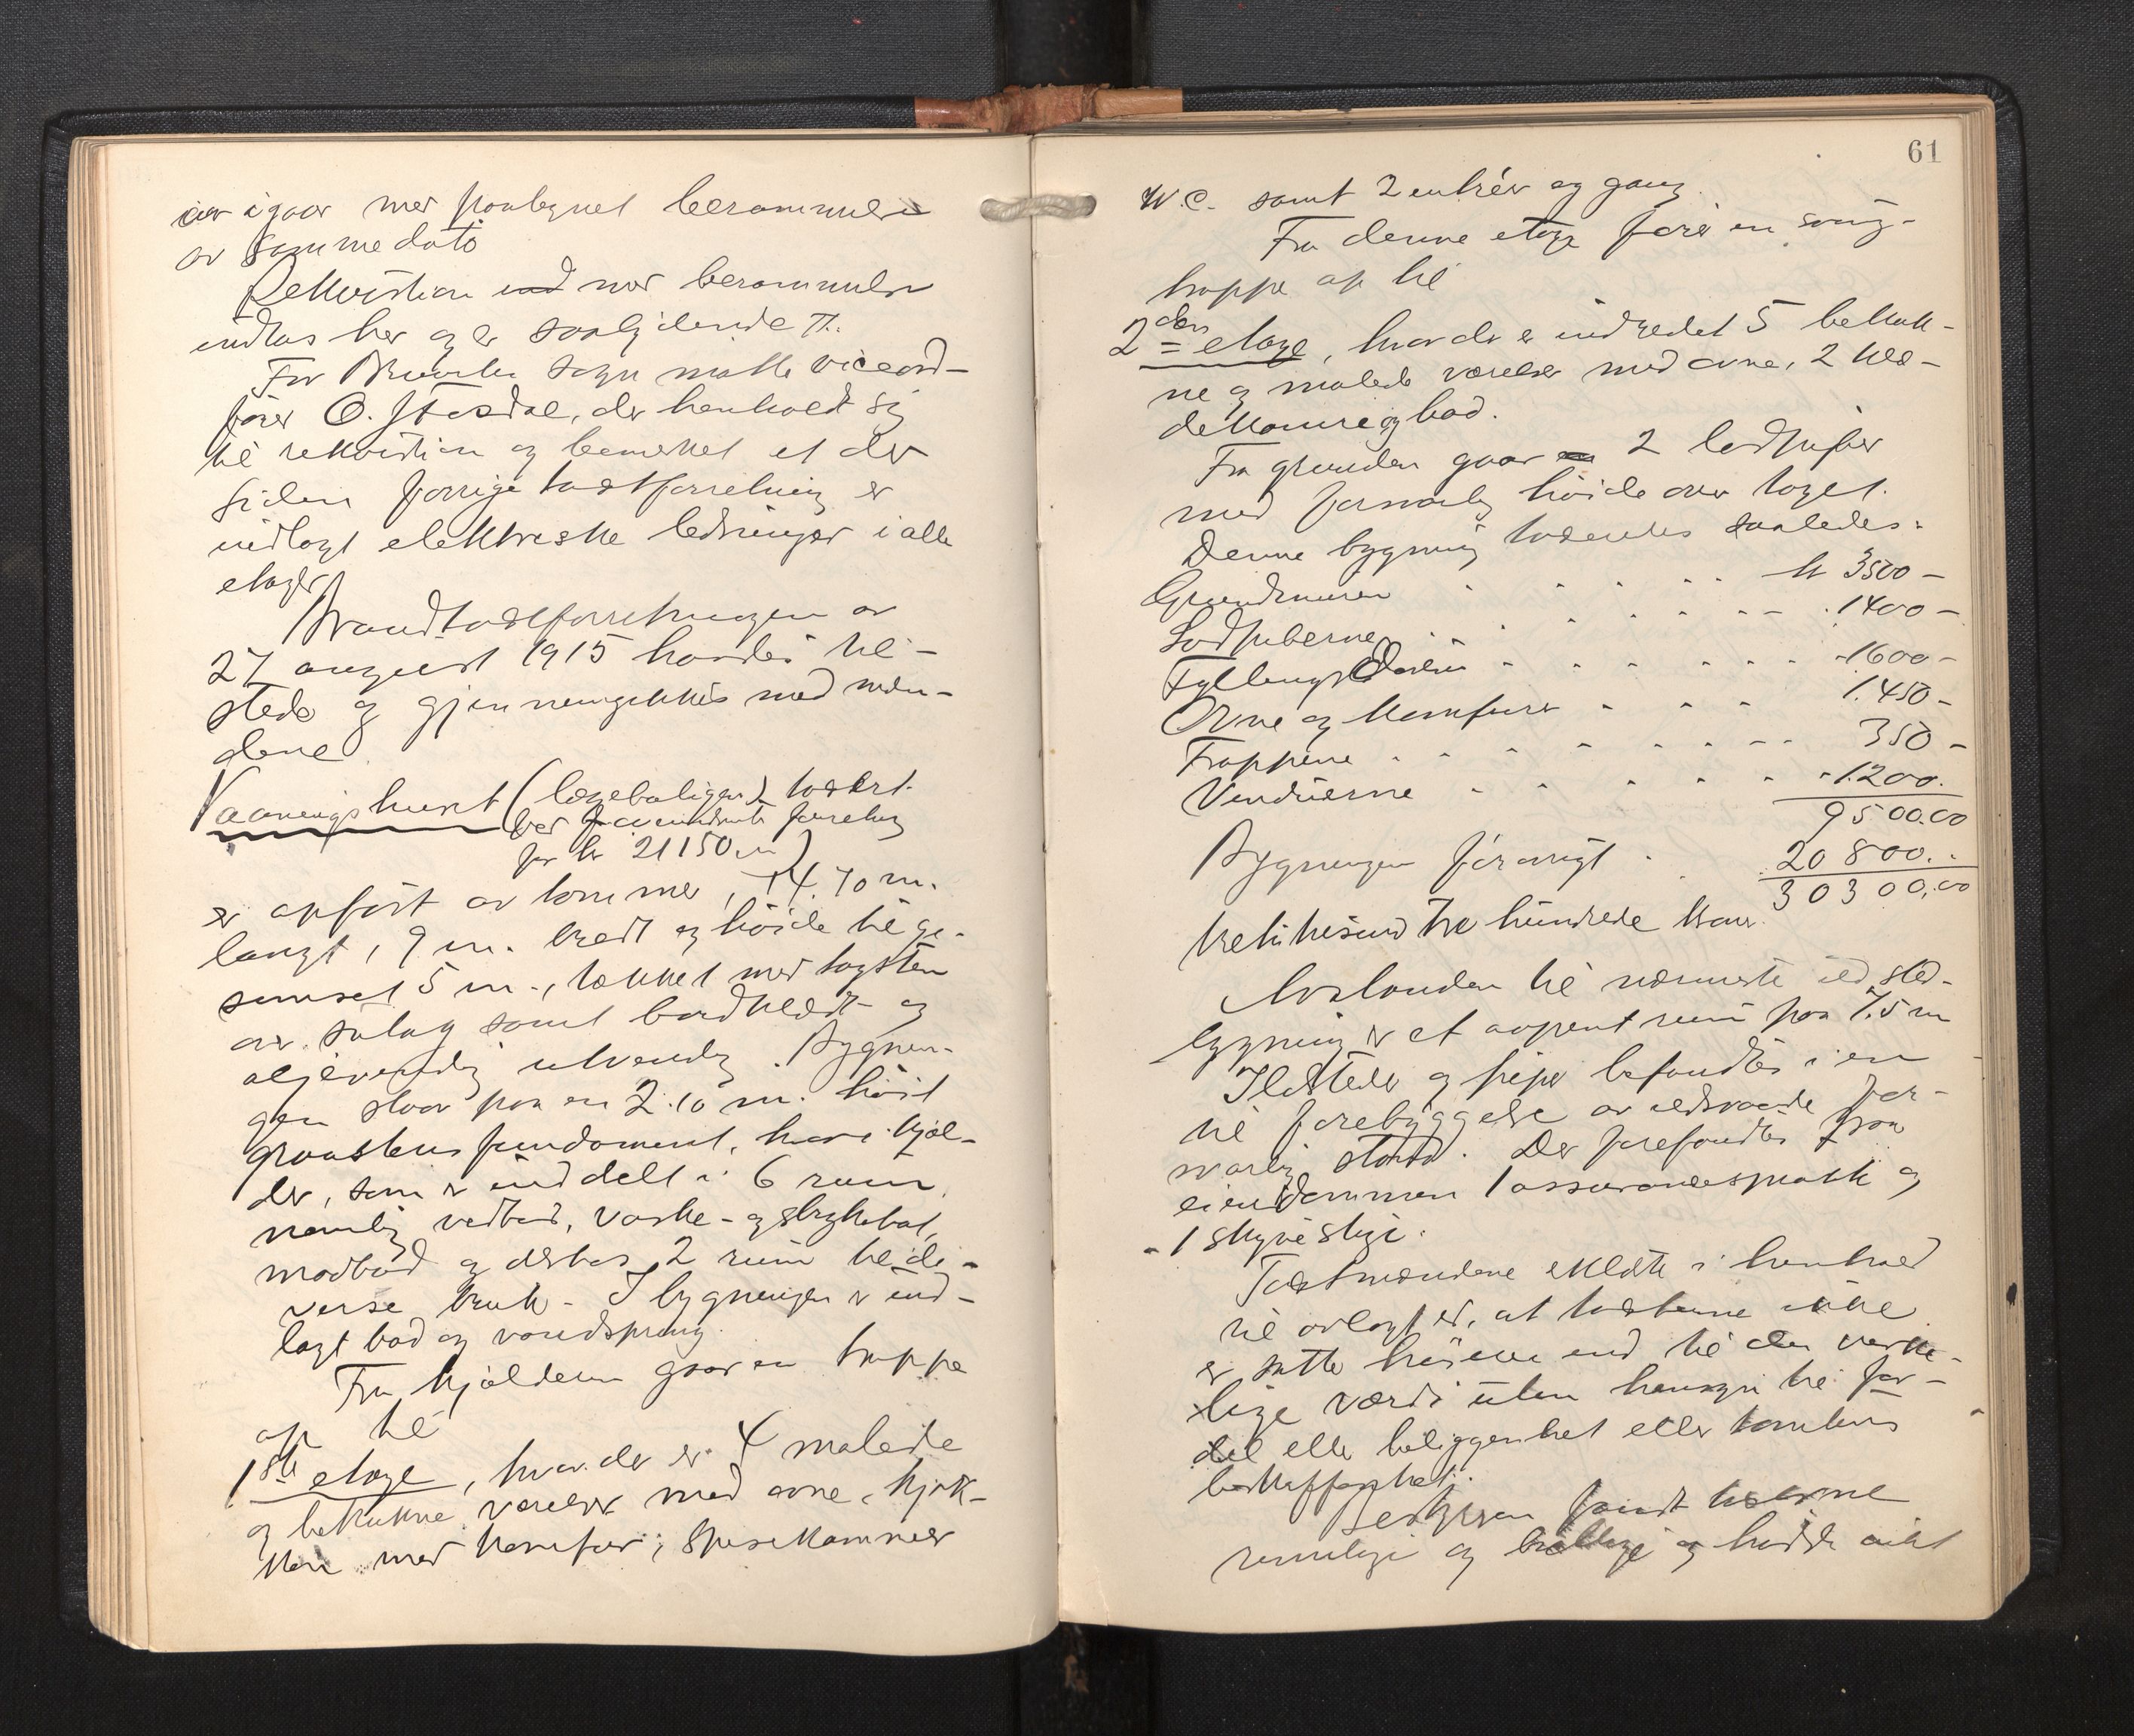 av igaar med paategnet berammelse
av samme dato
Rekvisition med berammelse
indtas her og er saalydende
For sogn møtte viceord-
fører O. der henholdt sig
til rekvisition og bemerket at der
siden forrige takstforretning er
indlagt elektriske ledninger i alle
etager
Brandtakstforretningen av
27 august 1915 havdes til-
stede og gjennemgikkes med mæn-
dene.
Vaaningshuset (lægeboligen) takst.
ved forretning
for kr 21150 )
er opført av tømmer, 14.70 m.
langt, 9 m. bredt og høide til ge-
simset 5 m., tækket med tagsten
samt bordklædt og
oljevendig utvendig. Bygnin-
gen staar paa en 2.10 m. høit
graastens fundament, hvori kjel-
der, som er inddelt i 6 rum
nemlig vedbod, vaske- og strykebod,
matbod og 2 rum til di-
verse bruk. I bygningen er ind-
lagt bad og vandspring.
Fra kjelderen gaar en trappe
op til
1ste etage, hvor der er 4 malede
og betrukne værelser med ovne, kjøk-
ken med komfur, spisekammer
61
W.C. samt 2 entréer og gang.
Fra denne etage fører en sving-
trappe op til
2den etage, hvor der er indredet 5 betruk-
ne og malede værelser med ovne, 2 klæ-
dekamre og bad.
Fra grunden gaar 2 lodpiper
med forsvarlig høide over taget.
Denne bygning takseredes saaledes:
Grundmuren kr 3500 -
Lodpiberne 1400 -
Fyllingsdørene 1600 -
Ovne og komfurer 1.450 -
Trappene 350 -
Vinduerne 1200.
9500.00
Bygningen forøvrigt 20 800.
30300.00
trettitusind tre hundrede kroner
Avstanden til nærmeste ildsted-
bygning er et aapent rum paa 7.5 m
Ildsteder og piper befandtes i en
til forebyggelse av ildsvaade for-
svarlig stand. Der forefandtes paa
eiendommen 1 assurancespand og
1 skyvestige.
Takstmændene erklærte i henhold
til avlagt ed, at taksterne ikke
er satte høiere end til den virke-
lige værdi uten hensyn til for-
del eller beliggenhet eller tomtens
beskaffenhet.
fandt taksterne
rimelige og billige og hadde intet